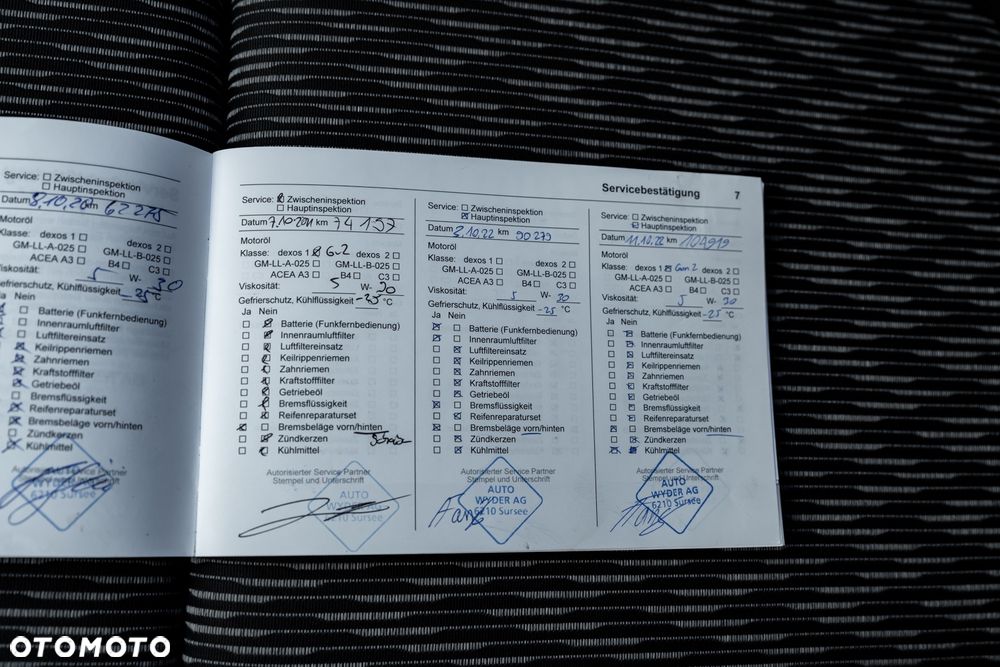 Service: Zwischeninspektion
Hauptinspektion
Datum 8.10.20 km 62275
Motoröl
Klasse: dexos 1 dexos 2
GM-LL-A-025 GM-LL-B-025
ACEA A3 B4 C3
Viskosität: 5 W- 30
Gefrierschutz, Kühlflüssigkeit -25 °C
Ja Nein
Batterie (Funkfernbedienung)
Innenraumluftfilter
Luftfiltereinsatz
Keilrippenriemen
Zahnriemen
Kraftstofffilter
Getriebeöl
Bremsflüssigkeit
Reifenreparaturset
Bremsbeläge vorn/hinten
Zündkerzen
Kühlmittel
Autorisierter Service Partner
Stempel und Unterschrift
WYDER AG
6210 Sursee
Servicebestätigung 7
Service: Zwischeninspektion
Hauptinspektion
Datum 7.10.2021 km 74157
Motoröl
Klasse: dexos 1 G-2 dexos 2
GM-LL-A-025 GM-LL-B-025
ACEA A3 B4 C3
Viskosität: 5 W- 30
Gefrierschutz, Kühlflüssigkeit -25 °C
Ja Nein
Batterie (Funkfernbedienung)
Innenraumluftfilter
Luftfiltereinsatz
Keilrippenriemen
Zahnriemen
Kraftstofffilter
Getriebeöl
Bremsflüssigkeit
Reifenreparaturset
Bremsbeläge vorn/hinten
Zündkerzen
Kühlmittel
Autorisierter Service Partner
Stempel und Unterschrift
AUTO
WYDER AG
6210 Sursee
Service: Zwischeninspektion
Hauptinspektion
Datum 8.10.22 km 90279
Motoröl
Klasse: dexos 1 dexos 2
GM-LL-A-025 GM-LL-B-025
ACEA A3 B4 C3
Viskosität: 5 W- 30
Gefrierschutz, Kühlflüssigkeit -25 °C
Ja Nein
Batterie (Funkfernbedienung)
Innenraumluftfilter
Luftfiltereinsatz
Keilrippenriemen
Zahnriemen
Kraftstofffilter
Getriebeöl
Bremsflüssigkeit
Reifenreparaturset
Bremsbeläge vorn/hinten
Zündkerzen
Kühlmittel
Autorisierter Service Partner
Stempel und Unterschrift
AUTO
WYDER AG
6210 Sursee
Service: Zwischeninspektion
Hauptinspektion
Datum 11.10.22 km 104919
Motoröl
Klasse: dexos 1 Gen 2 dexos 2
GM-LL-A-025 GM-LL-B-025
ACEA A3 B4 C3
Viskosität: 5 W- 30
Gefrierschutz, Kühlflüssigkeit -25 °C
Ja Nein
Batterie (Funkfernbedienung)
Innenraumluftfilter
Luftfiltereinsatz
Keilrippenriemen
Zahnriemen
Kraftstofffilter
Getriebeöl
Bremsflüssigkeit
Reifenreparaturset
Bremsbeläge vorn/hinten
Zündkerzen
Kühlmittel
Autorisierter Service Partner
Stempel und Unterschrift
AUTO
WYDER AG
6210 Sursee
OTOMOTO